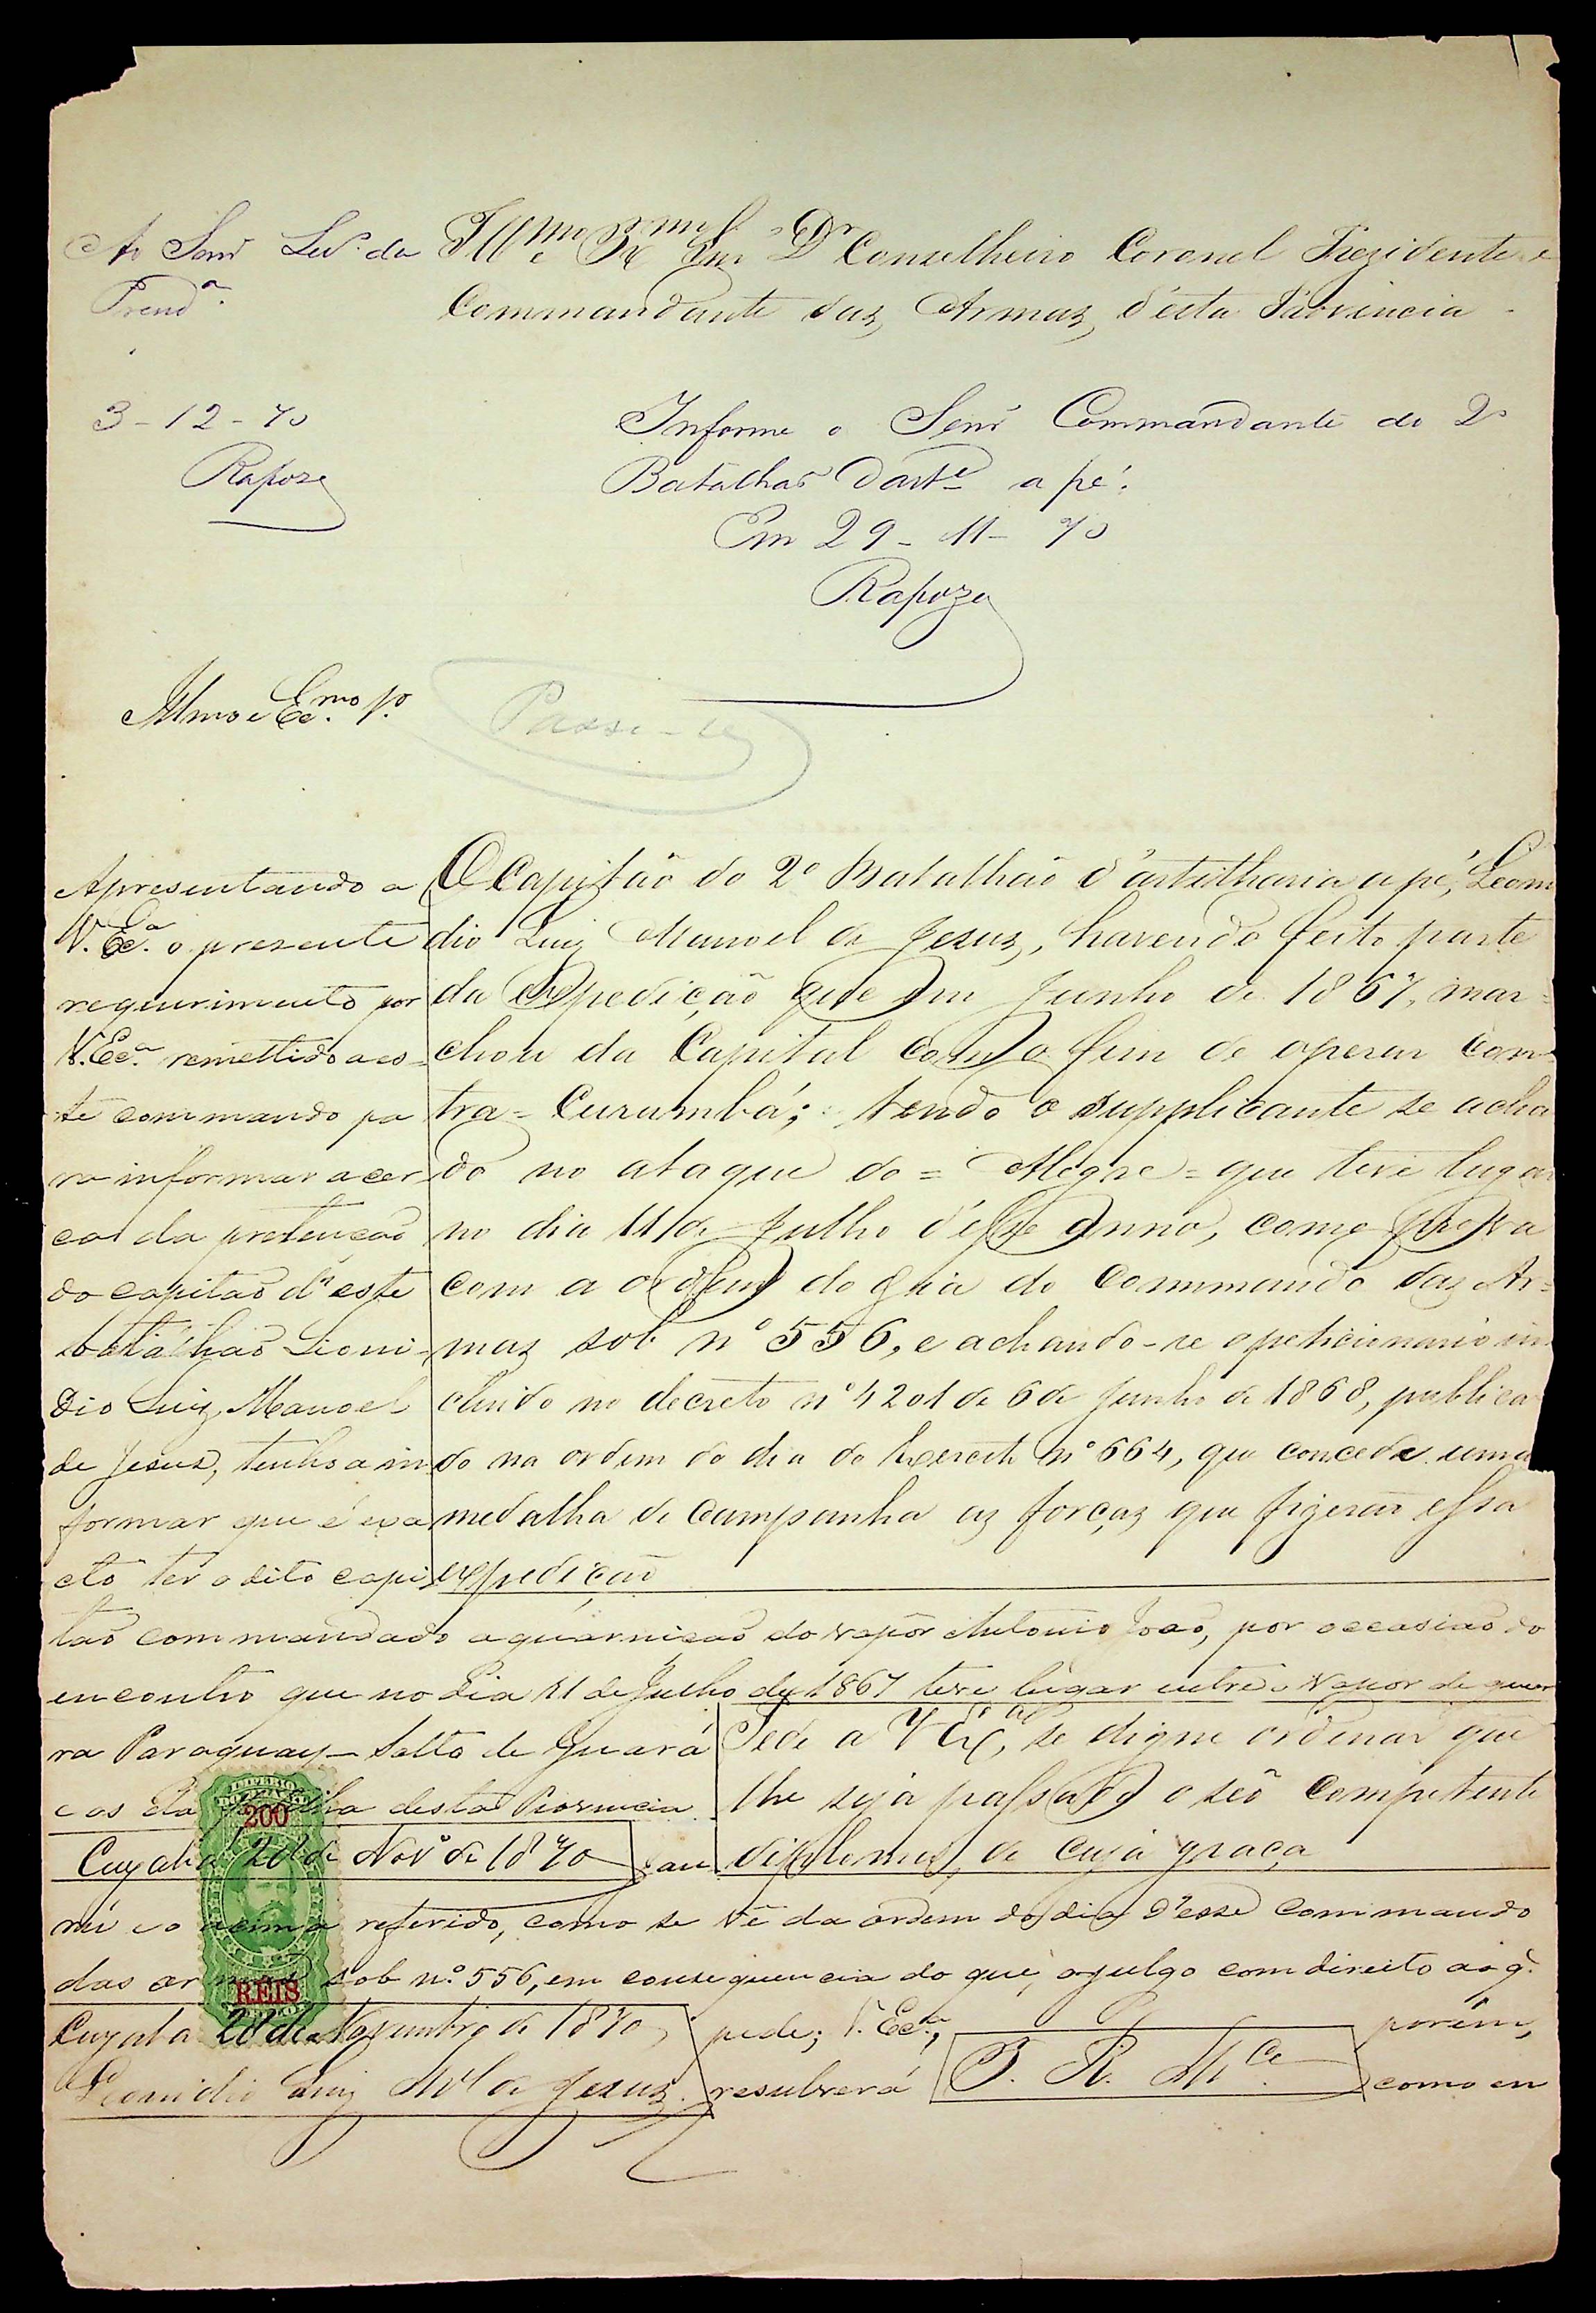 Ao Senr Secr.º da
Prend.ª
Illmo e Exmo Snr Dr Conselheiro Coronel Prezidente e
Commandante das Armas, d'esta Provincia
3-12-70
Rapozo
Informe o Senr Commandante do 2º
Batalhão d'arte a pé.
Em 29-11-70
Rapozo
Illmo e Exmo Sº
Passe-se
O Capitão do 2º Batalhão d'artilharia a pé, Leoni
dio Luiz Manoel de Jesus, havendo feito parte
da Expedição que em Junho de 1867, mar=
chou da Capital com o fim de operar con
tra = Curumbá; tendo o supplicante se acha
do no ataque do = Alegre = que teve lugar
no dia 11 de Julho d'esse anno, como prova
com a ordem do dia do Commando das Ar=
mas sob nº 556, e achando-se o peticionario in
cluido no decreto nº 4201 de 6 de Junho de 1868, publica
do na ordem do dia do Exercito nº 664, que concede uma
medalha de campanha as forças que fizerão essa
expedição
Pede a V Exª, se digne ordenar que
lhe seja passado o seo competente
diploma, de cuja graça
E. R. Mce
Cuyabá 28 de Novº de 1870
Cuyabá 28 de Novembro de 1870
Leonidio Luiz Mel de Jesus
Apresentando a
V. Exª. o presente
requerimento por
V. Exª. remettido a es-
te commando pa
ra informar acer
ca da pretenção
do capitão d'este
batalhão Leoni-
dio Luiz Manoel
de Jesus, tenho a in
formar que é exa
cto ter o dito capi
tão commandado a guarnição do vapor Antonio João, por occasião do
encontro que no dia 11 de Julho de 1867 teve lugar entre o vapor de guer
ra Paraguay - Salto de Guará
e os da flotilha desta Provincia
reu e o acima referido, como se vê da ordem do dia d'esse commando
das armas sob n.º 556, em consequencia do que, o julgo com direito ao q.
pede; V. Exª., porém,
resolverá como en
IMPERIO DO BRAZIL
200
REIS